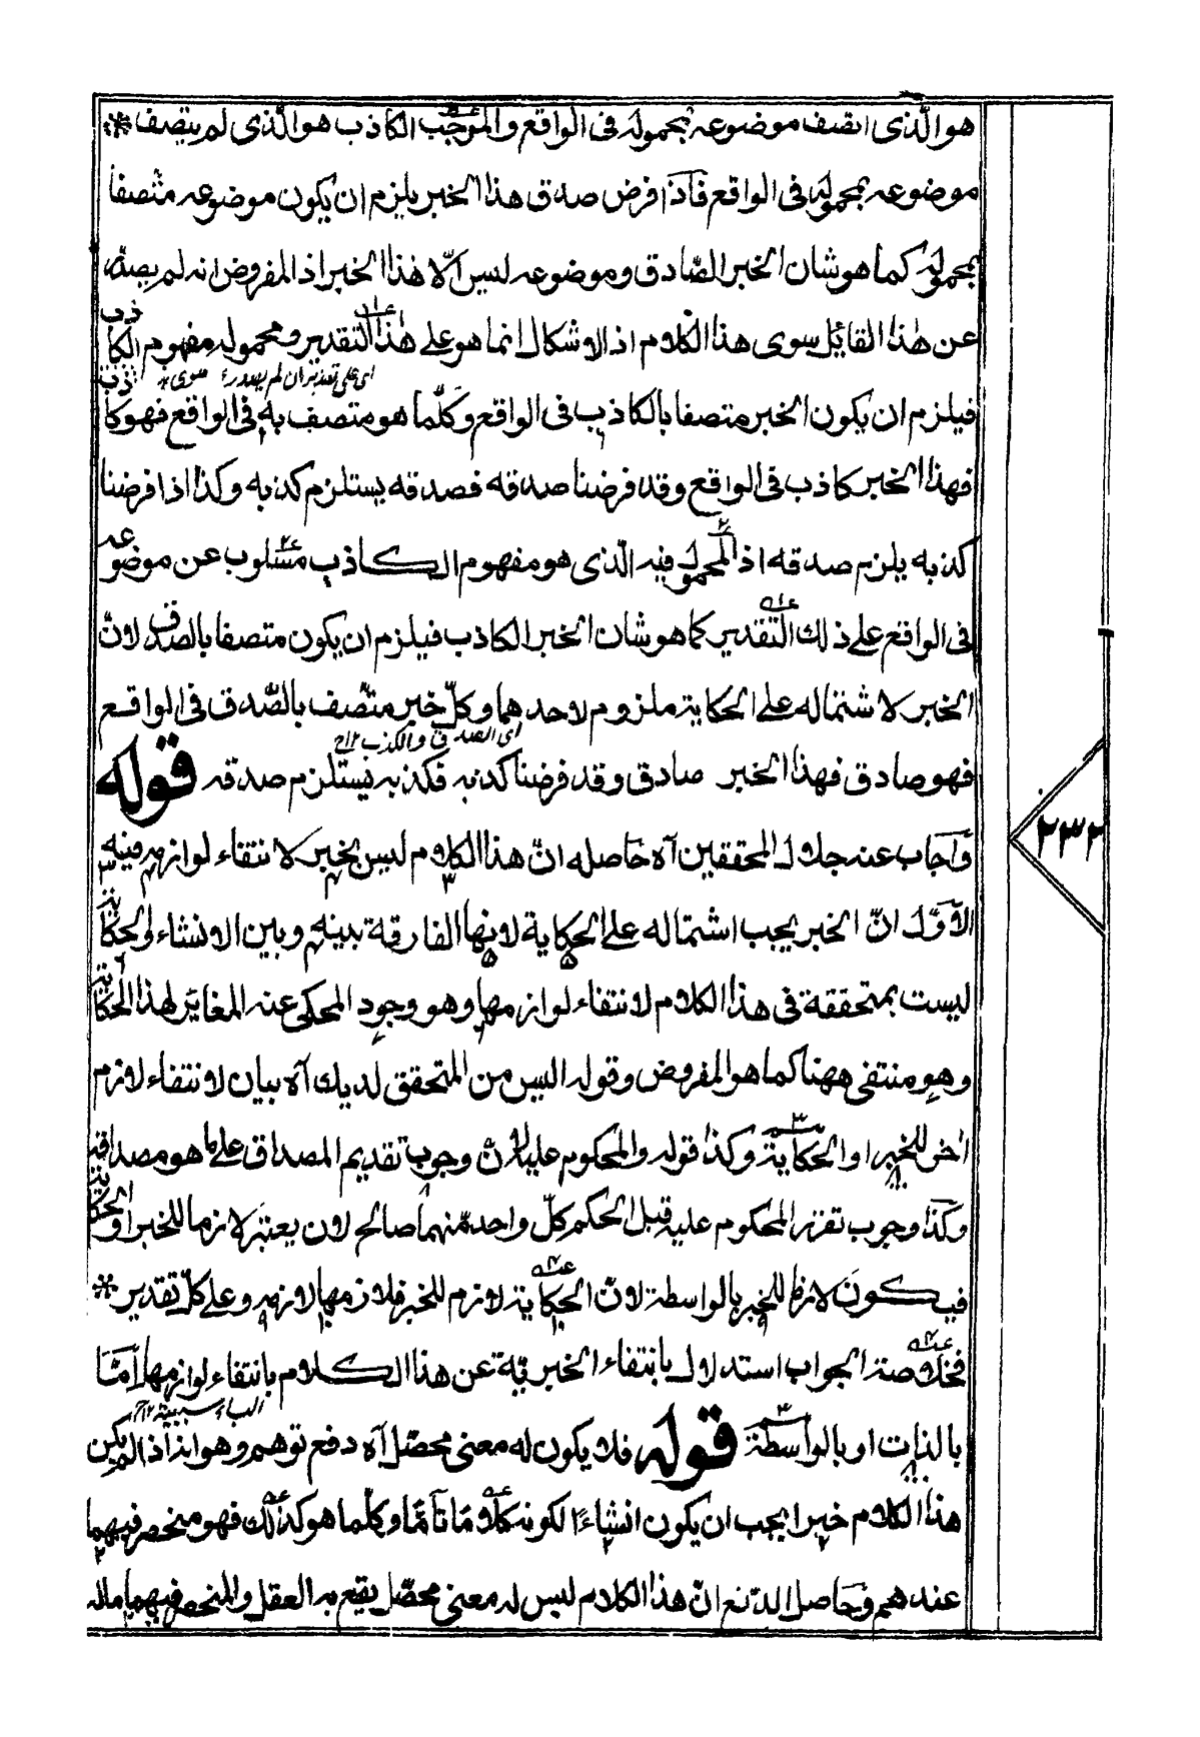 هو الّذى اتصف موضوعه بمحموله فى الواقع والموجب الكاذب هو الّذى لم يتصف *
موضوعه بمحموله فى الواقع فاذا فرض صدق هذا الخبر يلزم ان يكون موضوعه متصفا
بمحموله كما هو شان الخبر الصّادق وموضوعه ليس الّا هٰذا الخبر اذ المفروض انه لم يصدر
عن هٰذا القائل سوى هذا الكلام اذ الاشكال انما هو على هٰذا التقدير ومحموله مفهوم الكاذب
اى على تقدير ان لم يصدر سوى
فيلزم ان يكون الخبر متصفا بالكاذب فى الواقع وكلّما هو متصف به فى الواقع فهو كاذب
فهذا الخبر كاذب فى الواقع وقد فرضنا صدقه فصدقه يستلزم كذبه وكذا اذا فرضنا
كذبه يلزم صدقه اذ المحمول فيه الّذى هو مفهوم الكاذب مسلوب عن موضوعه
فى الواقع على ذلك التقدير كما هو شان الخبر الكاذب فيلزم ان يكون متصفا بالصدق لانّ
الخبر لاشتماله على الحكاية ملزوم لاحدهما وكلّ خبر متّصف بالصّدق فى الواقع
اى الصدق والكذب ١٢
فهو صادق فهذا الخبر صادق وقد فرضنا كذبه فكذبه يستلزم صدقه قوله
واجاب عنه جلال المحققين آه حاصله انّ هذا الكلام ليس بخبر لانتفاء لوازمه فيه
الاوّل انّ الخبر يجب اشتماله على الحكاية لانها الفارقة بينه وبين الانشاء والحكاية
ليست بمتحققة فى هذا الكلام لانتفاء لوازمها وهو وجود المحكى عنه المغائر لهذا الحكاية
وهو منتفى ههنا كما هو المفروض وقوله اليس من المتحقق لديك آه بيان لانتفاء لازم
اخر للخبر او الحكاية وكذا قوله والمحكوم عليه لانّ وجوب تقديم المصداق على ما هو مصداقه
وكذا وجوب تقرر المحكوم عليه قبل الحكم كلّ واحد منهما صالح لان يعتبر لازما للخبر او الحكاية
فيكون لازما للخبر بالواسطة لانّ الحكاية لازم للخبر فلازمها لازمه وعلى كلّ تقدير *
فخلاصة الجواب استدلال بانتفاء الخبريّة عن هذا الكلام بانتفاء لوازمها امّا
الباء سببية ١٢
بالذات او بالواسطة قوله فلا يكون له معنى محصّل آه دفع توهم وهو انه اذا لم يكن
هذا الكلام خبرا يجب ان يكون انشاءً لكونه كلاما تامّا وكلّما هو كذلك فهو منحصر فيهما
عندهم وحاصل الدفع انّ هذا الكلام ليس له معنى محصّل يقع به العقل والمنحصر فيهما ماله
٢٣٢